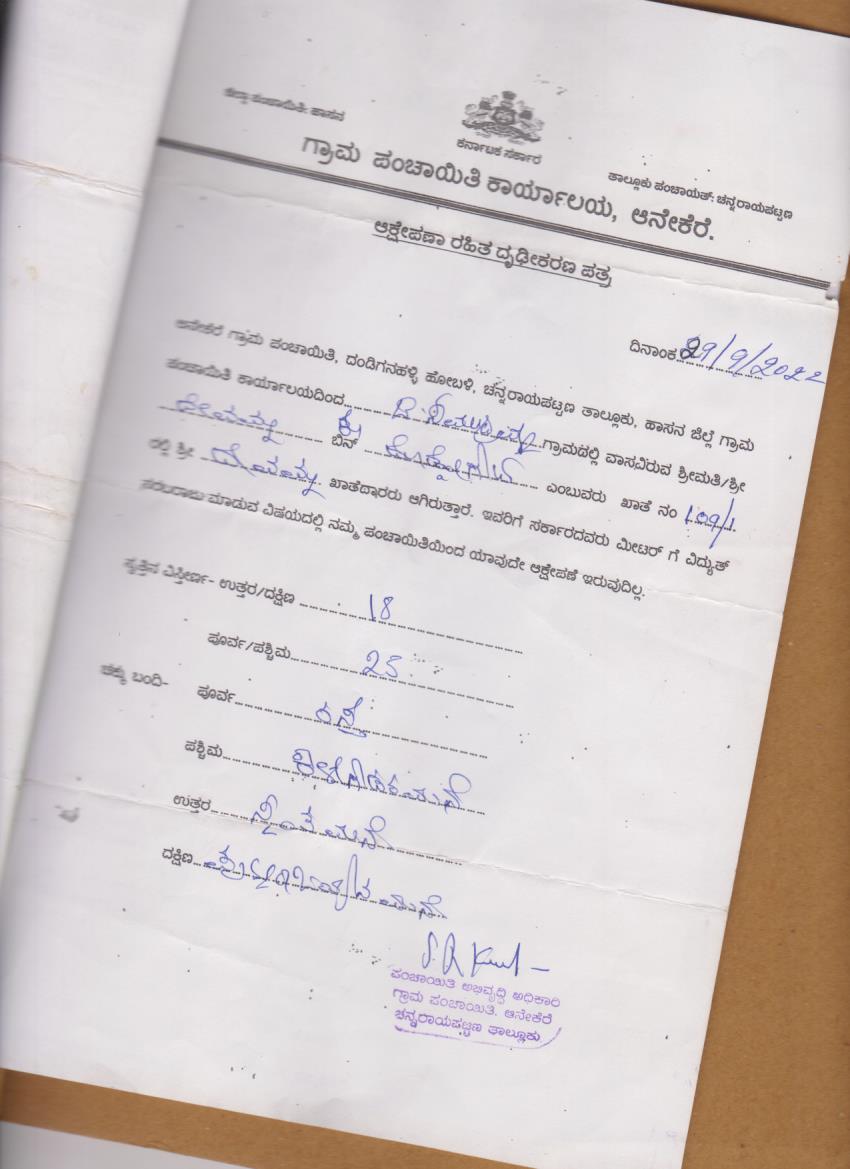 ಜಿಲ್ಲಾ ಪಂಚಾಯಿತಿ: ಹಾಸನ
ಕರ್ನಾಟಕ ಸರ್ಕಾರ
ತಾಲ್ಲೂಕು ಪಂಚಾಯತ್: ಚನ್ನರಾಯಪಟ್ಟಣ
ಗ್ರಾಮ ಪಂಚಾಯಿತಿ ಕಾರ್ಯಾಲಯ, ಆನೇಕೆರೆ.
ಆಕ್ಷೇಪಣಾ ರಹಿತ ದೃಢೀಕರಣ ಪತ್ರ
ದಿನಾಂಕ 29/9/2022
ಆನೇಕೆರೆ ಗ್ರಾಮ ಪಂಚಾಯಿತಿ, ದಂಡಿಗನಹಳ್ಳಿ ಹೋಬಳಿ, ಚನ್ನರಾಯಪಟ್ಟಣ ತಾಲ್ಲೂಕು, ಹಾಸನ ಜಿಲ್ಲೆ ಗ್ರಾಮ
ಪಂಚಾಯಿತಿ ಕಾರ್ಯಾಲಯದಿಂದ ಗ್ರಾಮದಲ್ಲಿ ವಾಸವಿರುವ ಶ್ರೀಮತಿ/ಶ್ರೀ
ಬಿನ್ ಎಂಬುವರು ಖಾತೆ ನಂ 109/1
ರಲ್ಲಿ ಶ್ರೀ ಖಾತೆದಾರರು ಆಗಿರುತ್ತಾರೆ. ಇವರಿಗೆ ಸರ್ಕಾರದವರು ಮೀಟರ್ ಗೆ ವಿದ್ಯುತ್
ಸರಬರಾಜು ಮಾಡುವ ವಿಷಯದಲ್ಲಿ ನಮ್ಮ ಪಂಚಾಯಿತಿಯಿಂದ ಯಾವುದೇ ಆಕ್ಷೇಪಣೆ ಇರುವುದಿಲ್ಲ.
ಸ್ವತ್ತಿನ ವಿಸ್ತೀರ್ಣ- ಉತ್ತರ/ದಕ್ಷಿಣ 18
ಪೂರ್ವ/ಪಶ್ಚಿಮ 25
ಚಕ್ಕು ಬಂದಿ- ಪೂರ್ವ ರಸ್ತೆ
ಪಶ್ಚಿಮ
ಉತ್ತರ ಮನೆ
ದಕ್ಷಿಣ ಮನೆ
ಪಂಚಾಯಿತಿ ಅಭಿವೃದ್ಧಿ ಅಧಿಕಾರಿ
ಗ್ರಾಮ ಪಂಚಾಯಿತಿ. ಆನೇಕೆರೆ
ಚನ್ನರಾಯಪಟ್ಟಣ ತಾಲ್ಲೂಕು